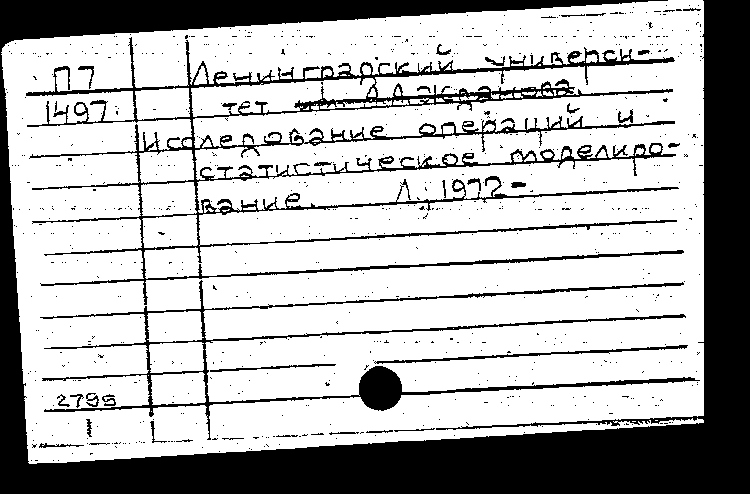 П7
Ленинградский универси-
1497.
тет им. А.А.Жданова.
Исследование операций и
статистическое моделиро-
вание. Л., 1972-
2795